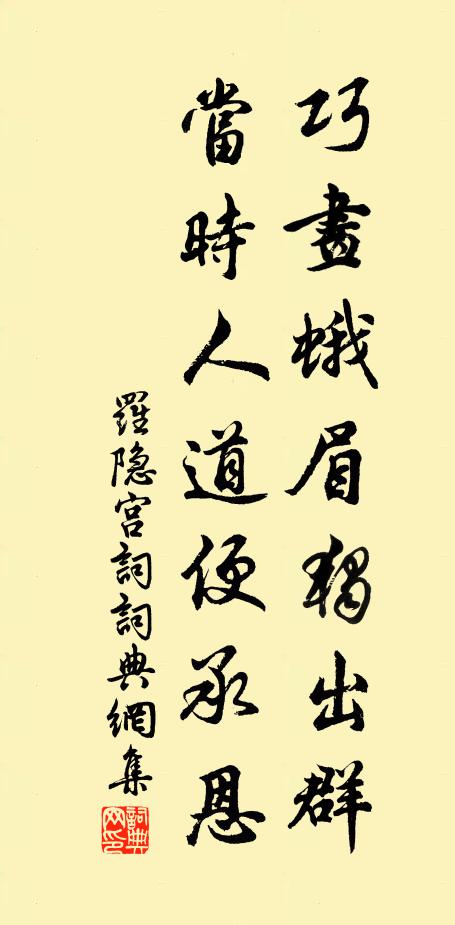 巧畫蛾眉獨出群
當時人道便承恩
羅隐宫詞詞典網集
詞典网印